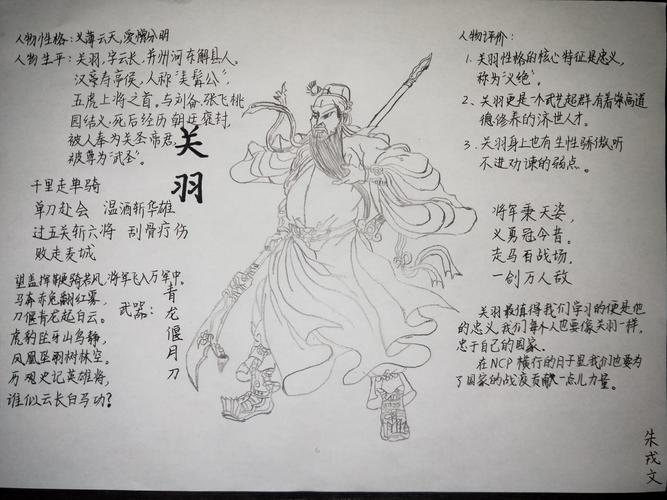 人物性格:义薄云天,爱憎分明
人物生平:关羽,字云长,并州河东解县人。
汉寿亭侯,人称"美髯公",
五虎上将之首。与刘备、张飞桃
园结义,死后经历朝廷褒封,
被人奉为关圣帝君,
被尊为"武圣"。
关羽
千里走单骑
单刀赴会 温酒斩华雄
过五关斩六将 刮骨疗伤
败走麦城
望盖挥鞭骋若风,将军飞入万军中。
马奔赤兔翻红雾,
刀偃青龙起白云。
虎豹
凤凰坠羽树林空。
历观史记英雄将,
谁似云长白马功?
武器:青龙偃月刀
人物评价:
1. 关羽性格的核心特征是忠义,
称为"义绝"。
2、关羽更是一个武艺超群,有着崇高道
德修养的济世人才。
3. 关羽身上也有生性骄傲,听
不进劝谏的弱点。
将军秉天姿,
义勇冠今昔。
走马百战场,
一剑万人敌
关羽最值得我们学习的便是他
的忠义,我们每个人也要像关羽一样,
忠于自己的国家。
在NCP横行的日子里,我们也要为
了国家的战疫贡献一点儿力量。
朱戎文